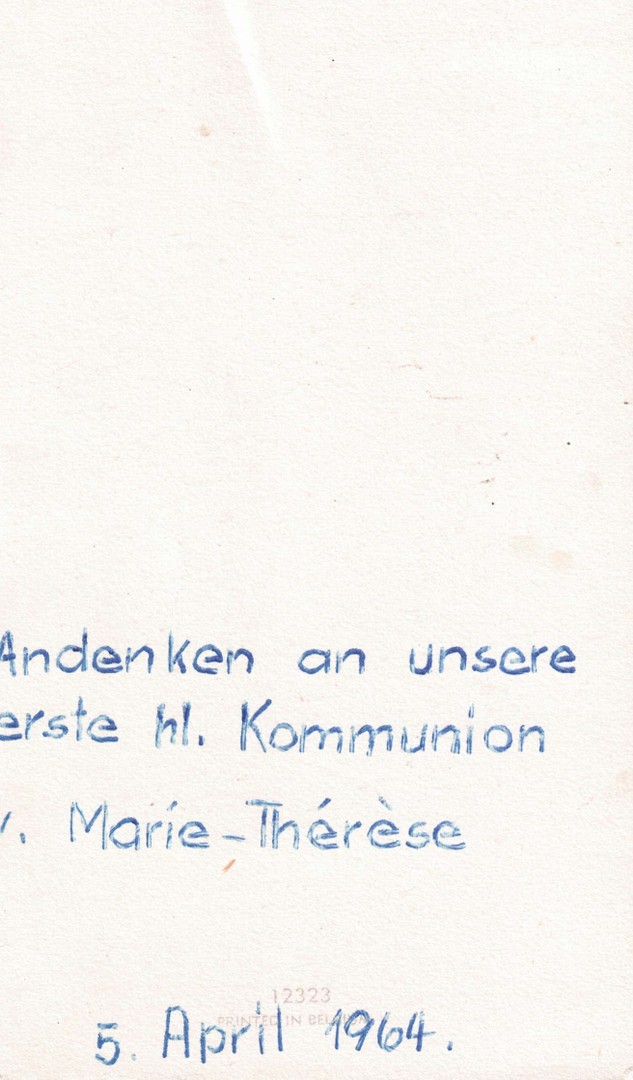 Andenken an unsere
erste hl. Kommunion
v. Marie-Thérèse
12323
PRINTED IN BELGIUM
5. April 1964.